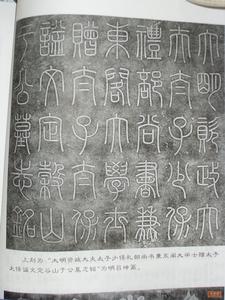 大明資政大
夫太子少保
禮部尚書兼
東閣大學士
贈太子太保
謚文定穀山
于公墓志銘
上刻为:“大明资政大夫太子少保礼部尚书兼东阁大学士赠太子
太保谥文定谷山于公墓志铭”为明吕坤篆。